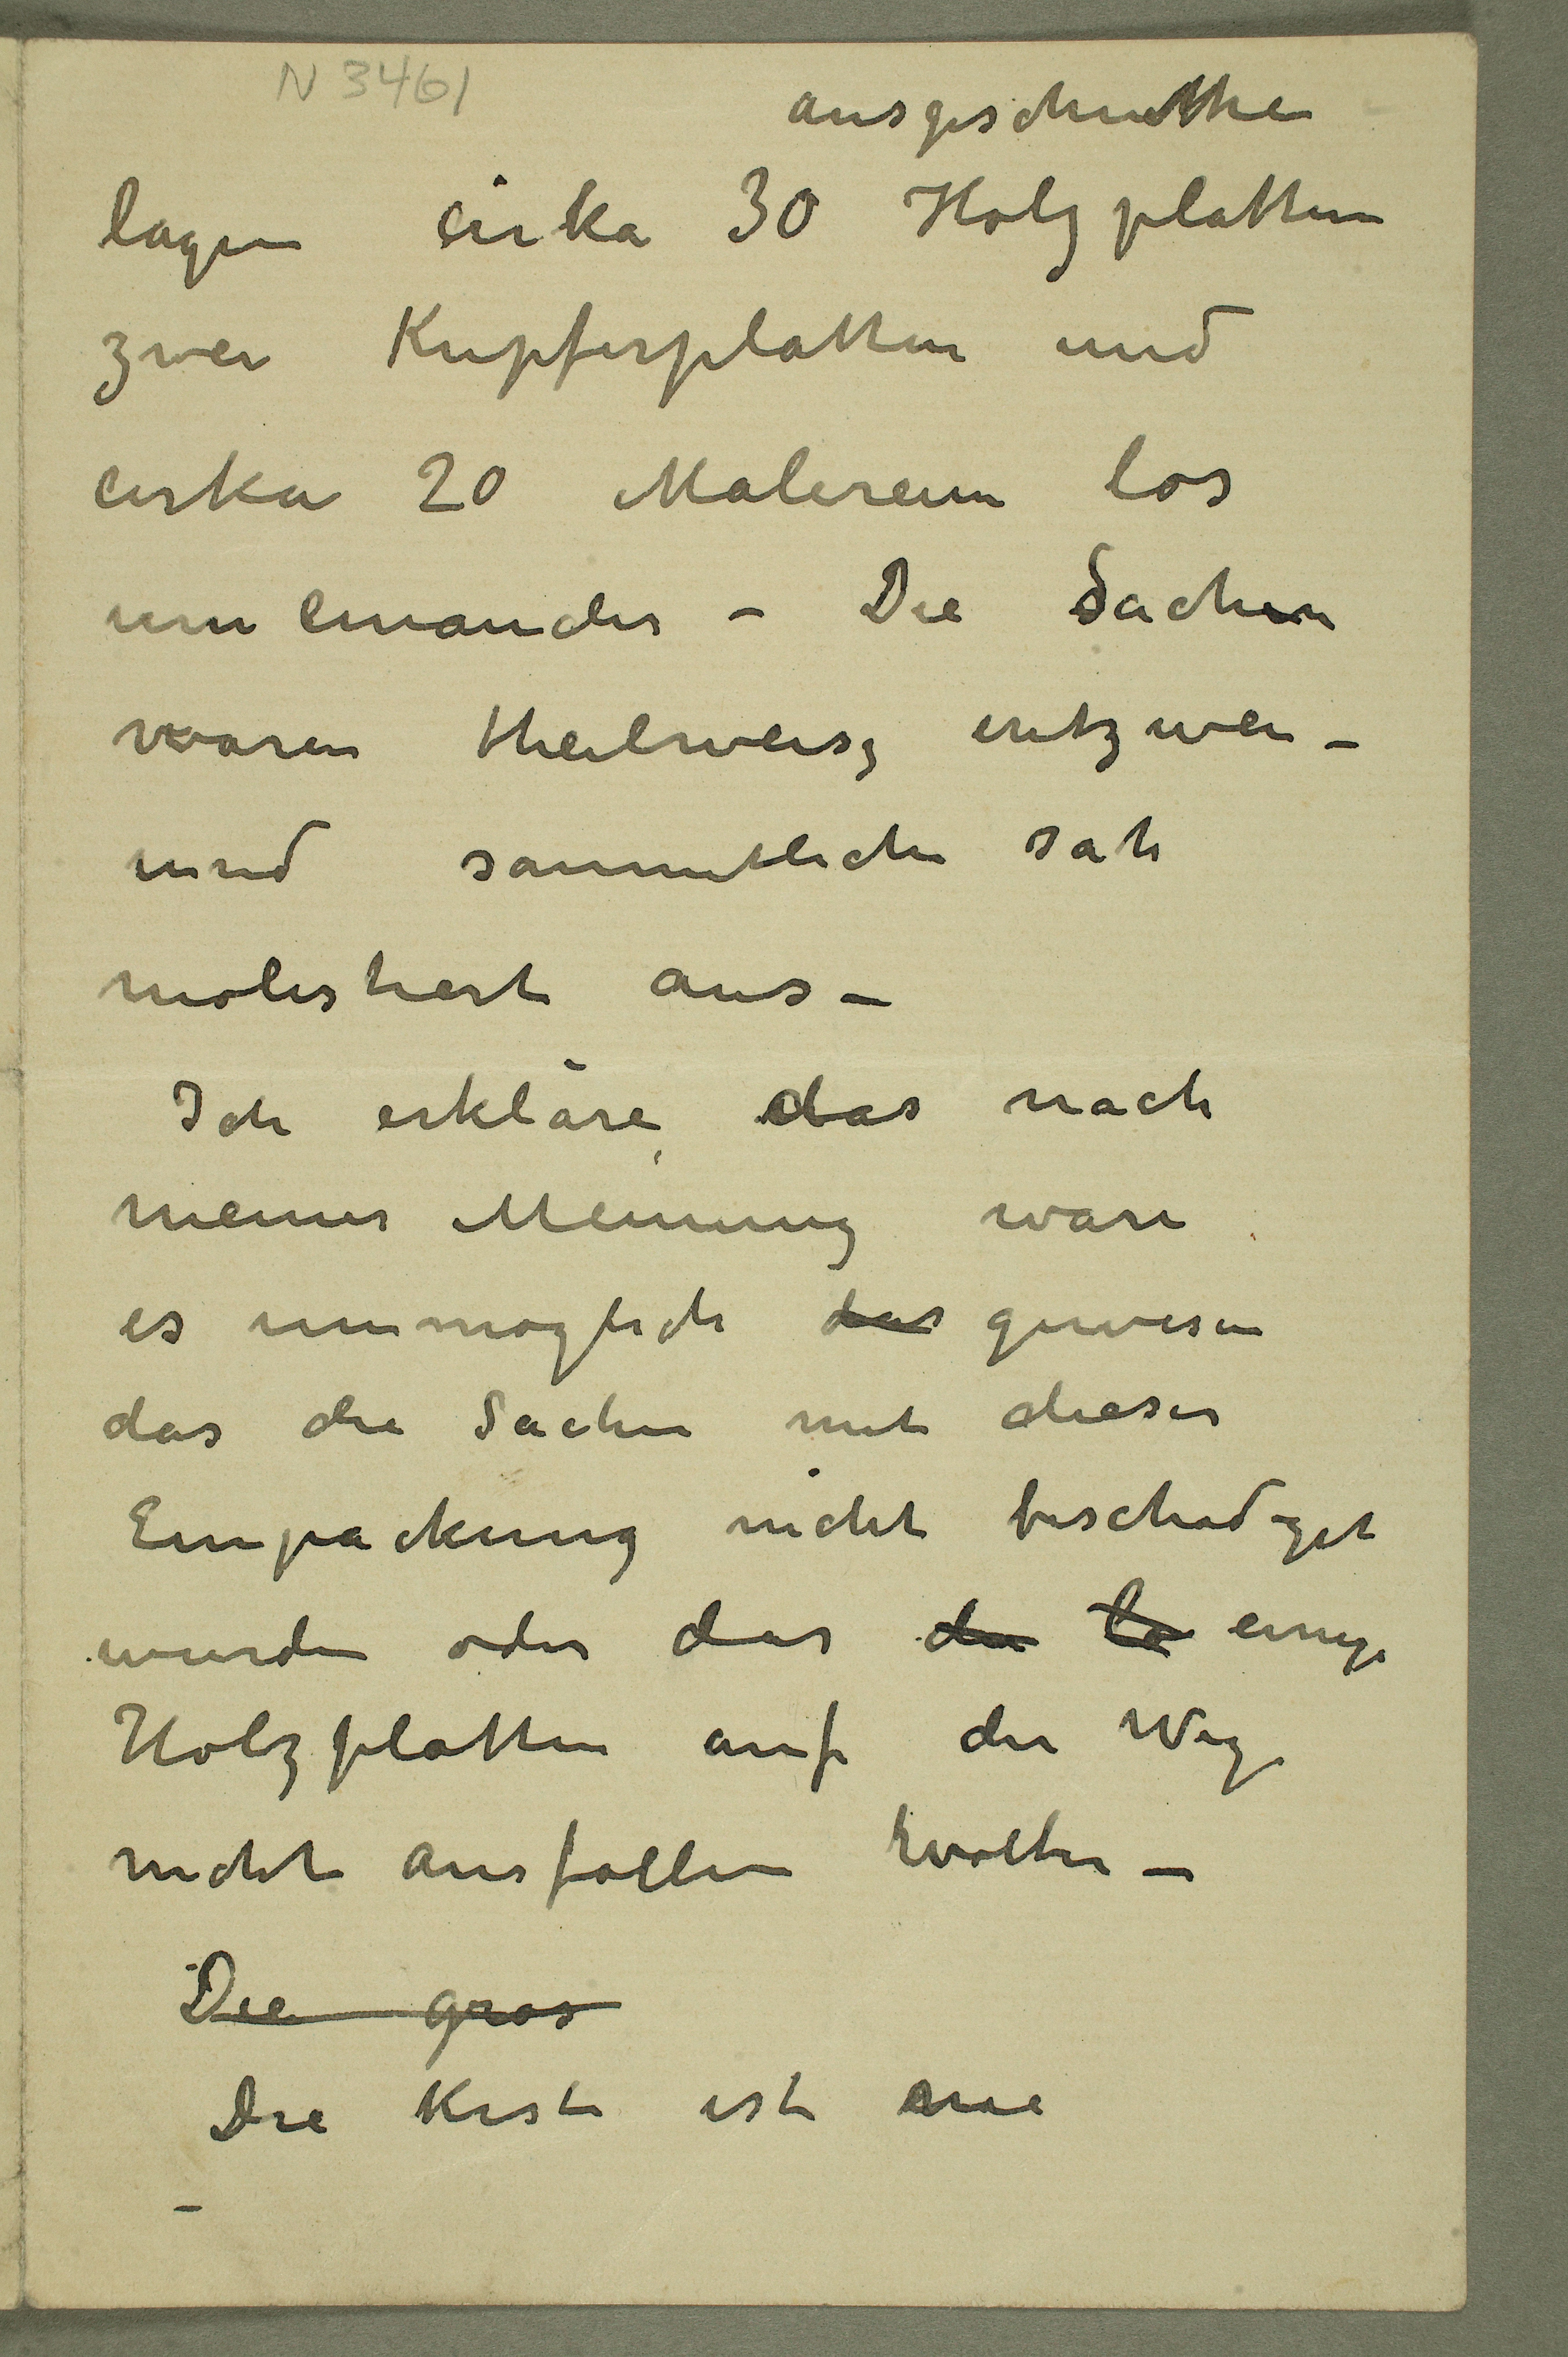 N 3461
ausgeschnittne
lagen cirka 30 Holzplatten
zwei Kupferplatten und
cirka 20 Malereien los
um einander – Die Sachen
waren theilweise entzwei –
und sammtliche sah
molestiert aus –
Ich erkläre, das nach
meiner Meinung ware
es unmoglich das gewesen
das die Sachen mit dieser
Einpackung nicht beschadiget
wurden oder das die lo einige
Holzplatten auf der Weg
nicht ausfallen wolten –
Die gros
Die Kiste ist eine
–